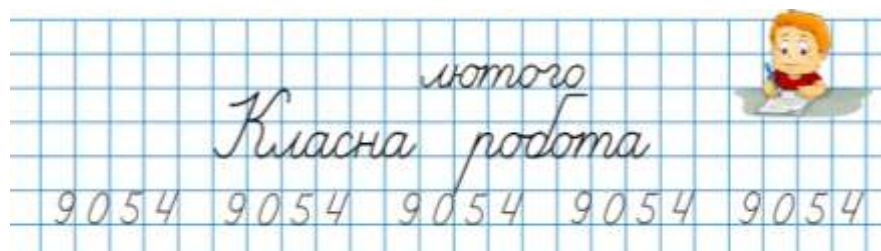 лютого
Класна робота
9054 9054 9054 9054 9054